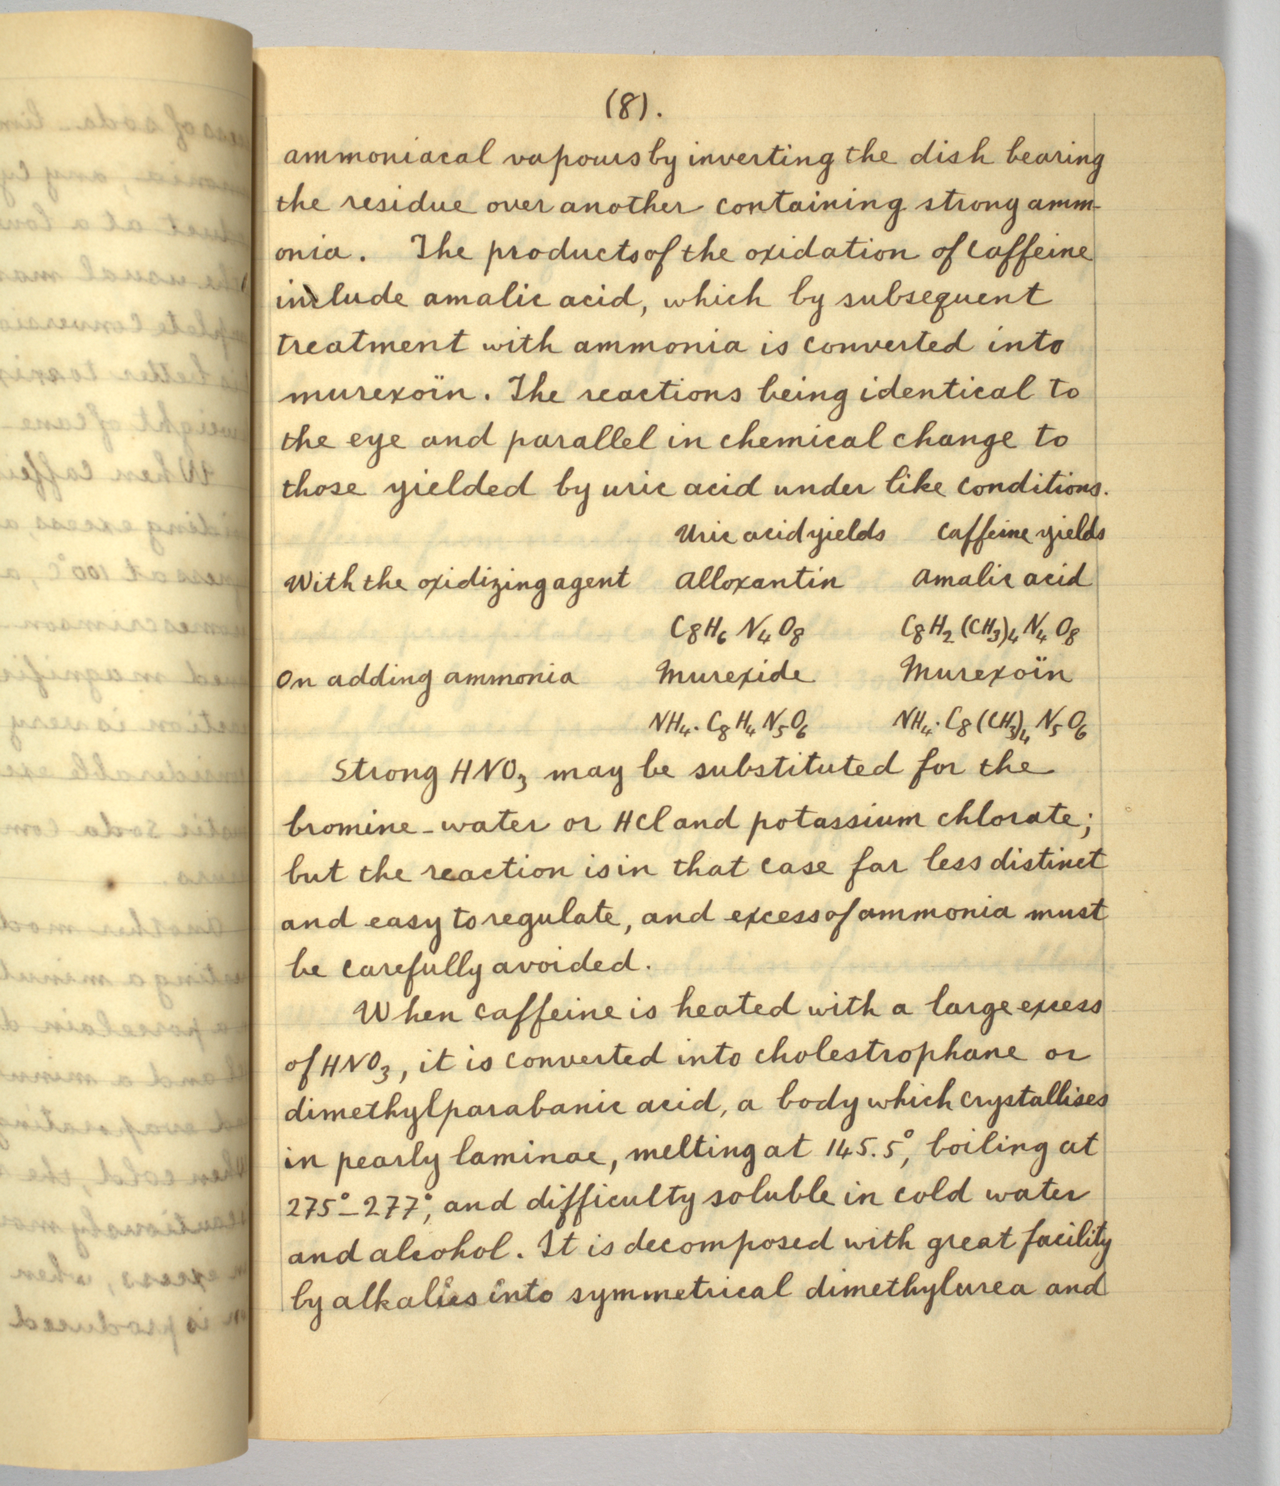 (8).
ammoniacal vapours by inverting the dish bearing
the residue over another containing strong amm-
onia. The products of the oxidation of caffeine
include amalic acid, which by subsequent
treatment with ammonia is converted into
murexoïn. The reactions being identical to
the eye and parallel in chemical change to
those yielded by uric acid under like conditions.
Uric acid yields caffeine yields
With the oxidizing agent alloxantin amalic acid
C₈H₆N₄O₈ C₈H₂(CH₃)₄N₄O₈
On adding ammonia Murexide Murexoïn
NH₄.C₈H₄N₅O₆ NH₄.C₈(CH₃)₄N₅O₆
Strong HNO₃ may be substituted for the
bromine-water or HCl and potassium chlorate;
but the reaction is in that case far less distinct
and easy to regulate, and excess of ammonia must
be carefully avoided.
When caffeine is heated with a large excess
of HNO₃, it is converted into cholestrophane or
dimethylparabanic acid, a body which crystallises
in pearly laminae, melting at 145.5°, boiling at
275°-277°, and difficulty soluble in cold water
and alcohol. It is decomposed with great facility
by alkalies into symmetrical dimethylurea and